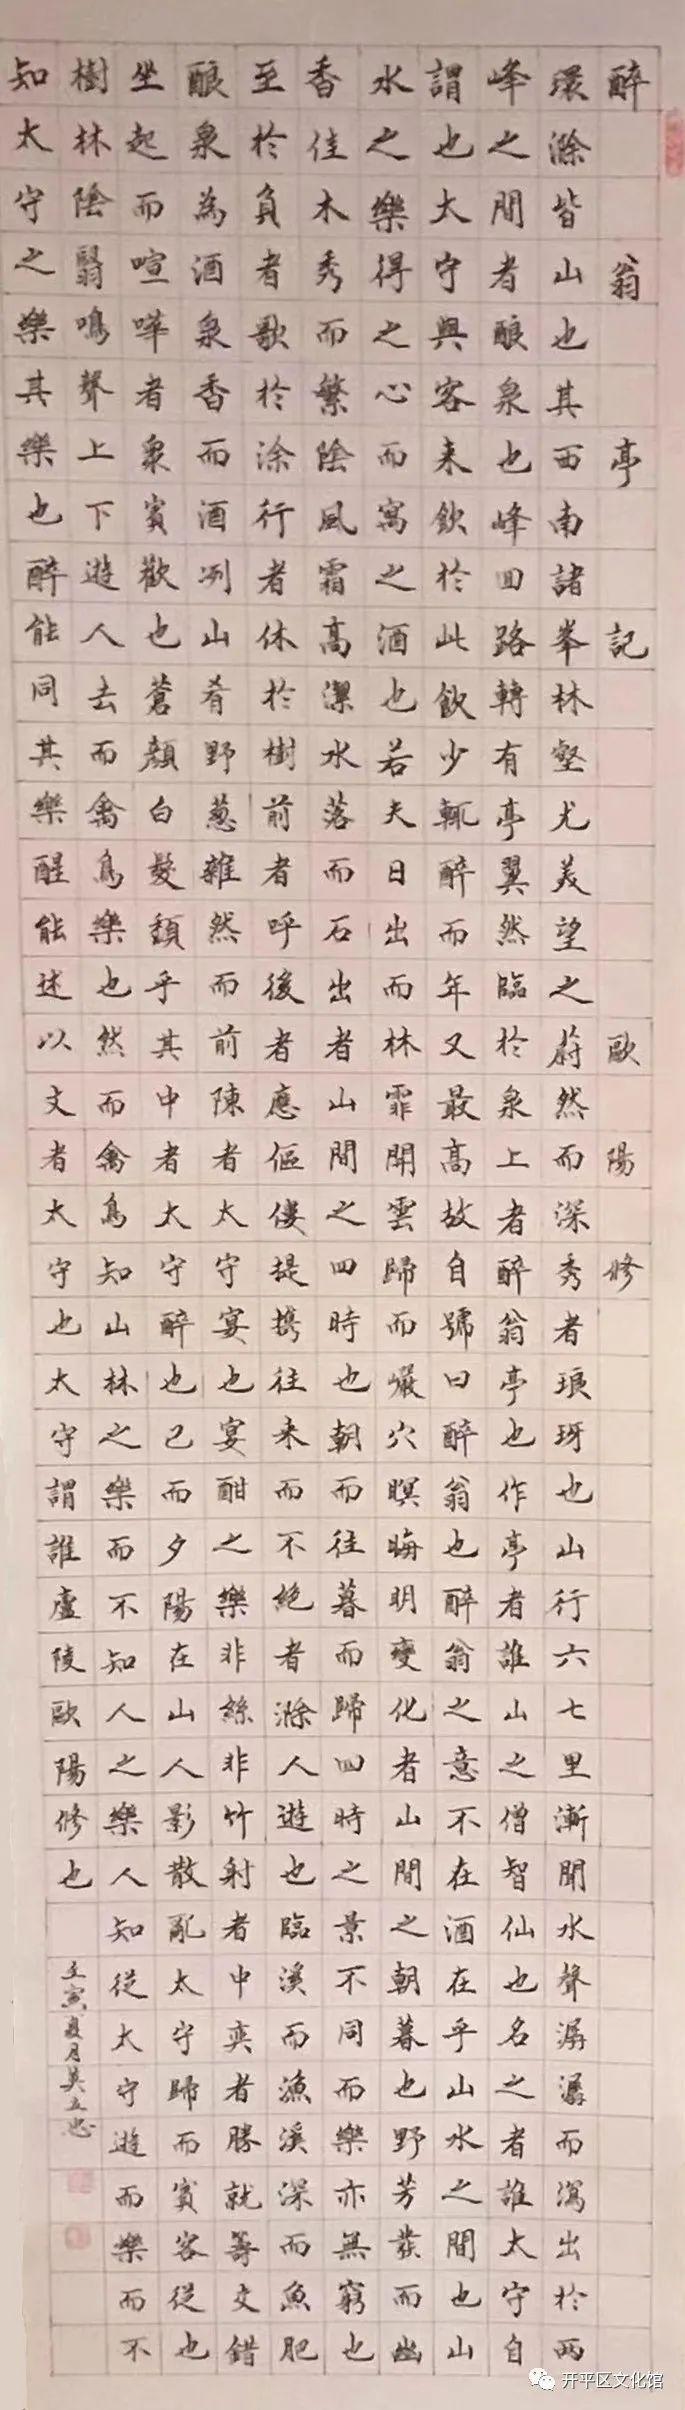 醉翁亭記 歐陽修
環滁皆山也其西南諸峯林壑尤美望之蔚然而深秀者琅玡也山行六七里漸聞水聲潺潺而瀉出於兩
峰之間者釀泉也峰回路轉有亭翼然臨於泉上者醉翁亭也作亭者誰山之僧智仙也名之者誰太守自
謂也太守與客来飲於此飲少輒醉而年又最高故自號曰醉翁也醉翁之意不在酒在乎山水之間也山
水之樂得之心而寓之酒也若夫日出而林霏開雲歸而巖穴暝晦明變化者山間之朝暮也野芳發而幽
香佳木秀而繁陰風霜高潔水落而石出者山間之四時也朝而往暮而歸四時之景不同而樂亦無窮也
至於負者歌於涂行者休於樹前者呼後者應傴僂提携往来而不絕者滁人遊也臨溪而漁溪深而魚肥
釀泉為酒泉香而酒冽山肴野葱雜然而前陳者太守宴也宴酣之樂非絲非竹射者中奕者勝就籌交錯
坐起而喧嘩者衆賓歡也蒼顏白髮頹乎其中者太守醉也已而夕陽在山人影散亂太守歸而賓客從也
樹林陰翳鳴聲上下遊人去而禽鳥樂也然而禽鳥知山林之樂而不知人之樂人知從太守遊而樂而不
知太守之樂其樂也醉能同其樂醒能述以文者太守也太守謂誰廬陵歐陽修也
壬寅夏月吴立忠
开平区文化馆